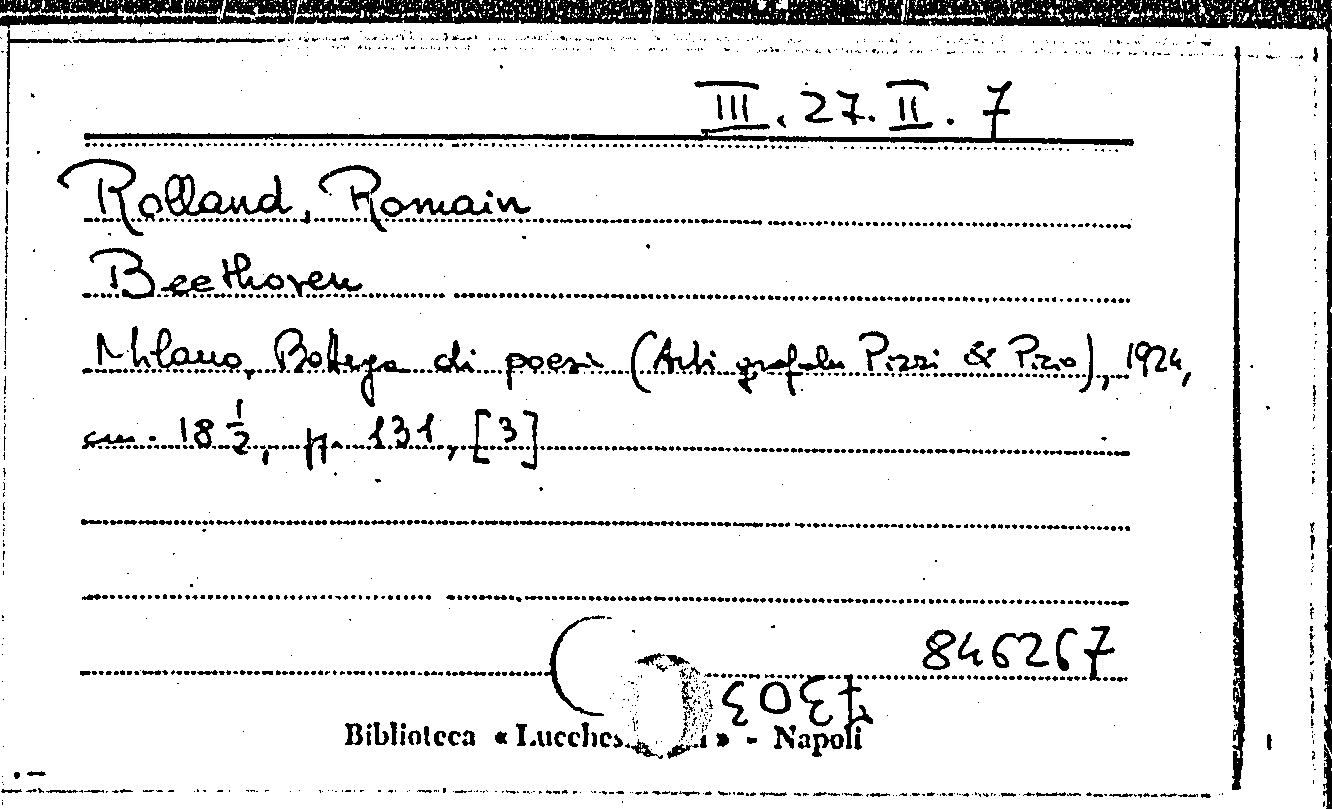 III. 27. II. 7
Rolland, Romain
Beethoven
Milano, Bottega di poesia (Arti grafiche Pizzi & Pizio), 1924,
cm. 18 1/2, pp. 131, [3]
846267
Biblioteca « » - Napoli